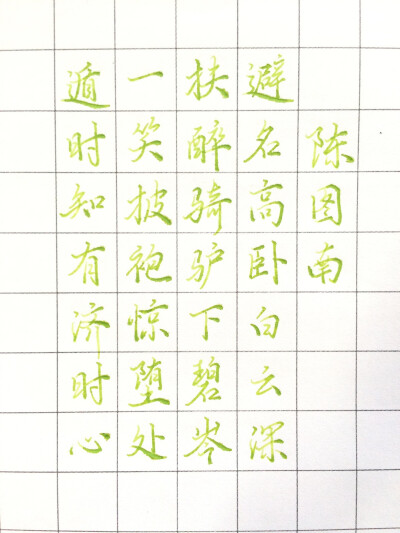 陈图南
避名高卧白云深
扶醉骑驴下碧岑
一笑披袍惊堕处
遁时知有济时心